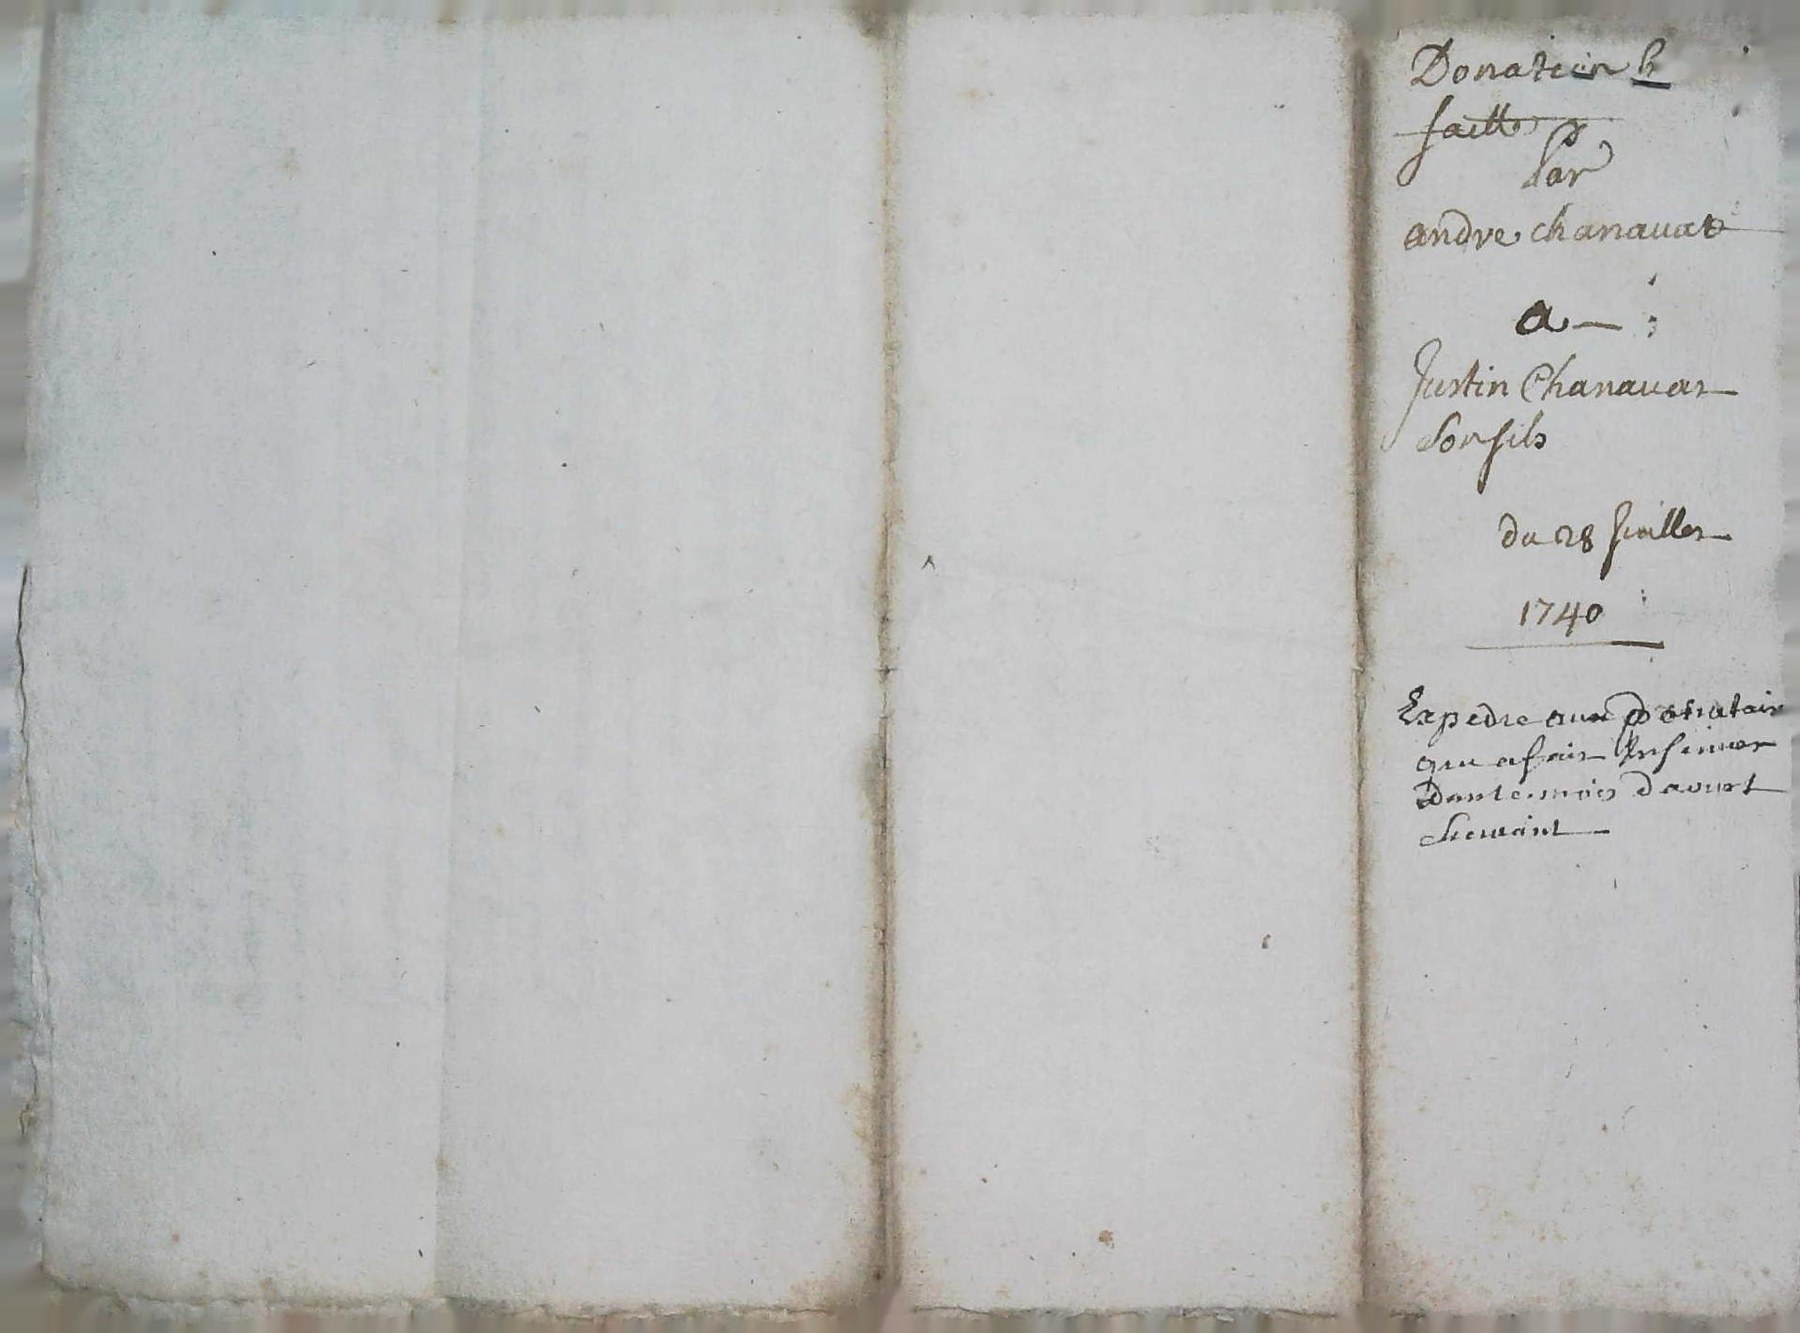 Donation
faitte
Par
andre chanauat
a
Justin Chanauat
Son fils
du 28 Juillet
1740
Expedie aux donatair
qui a fait Insinuer
Dans le mois d'aoust
Suivant